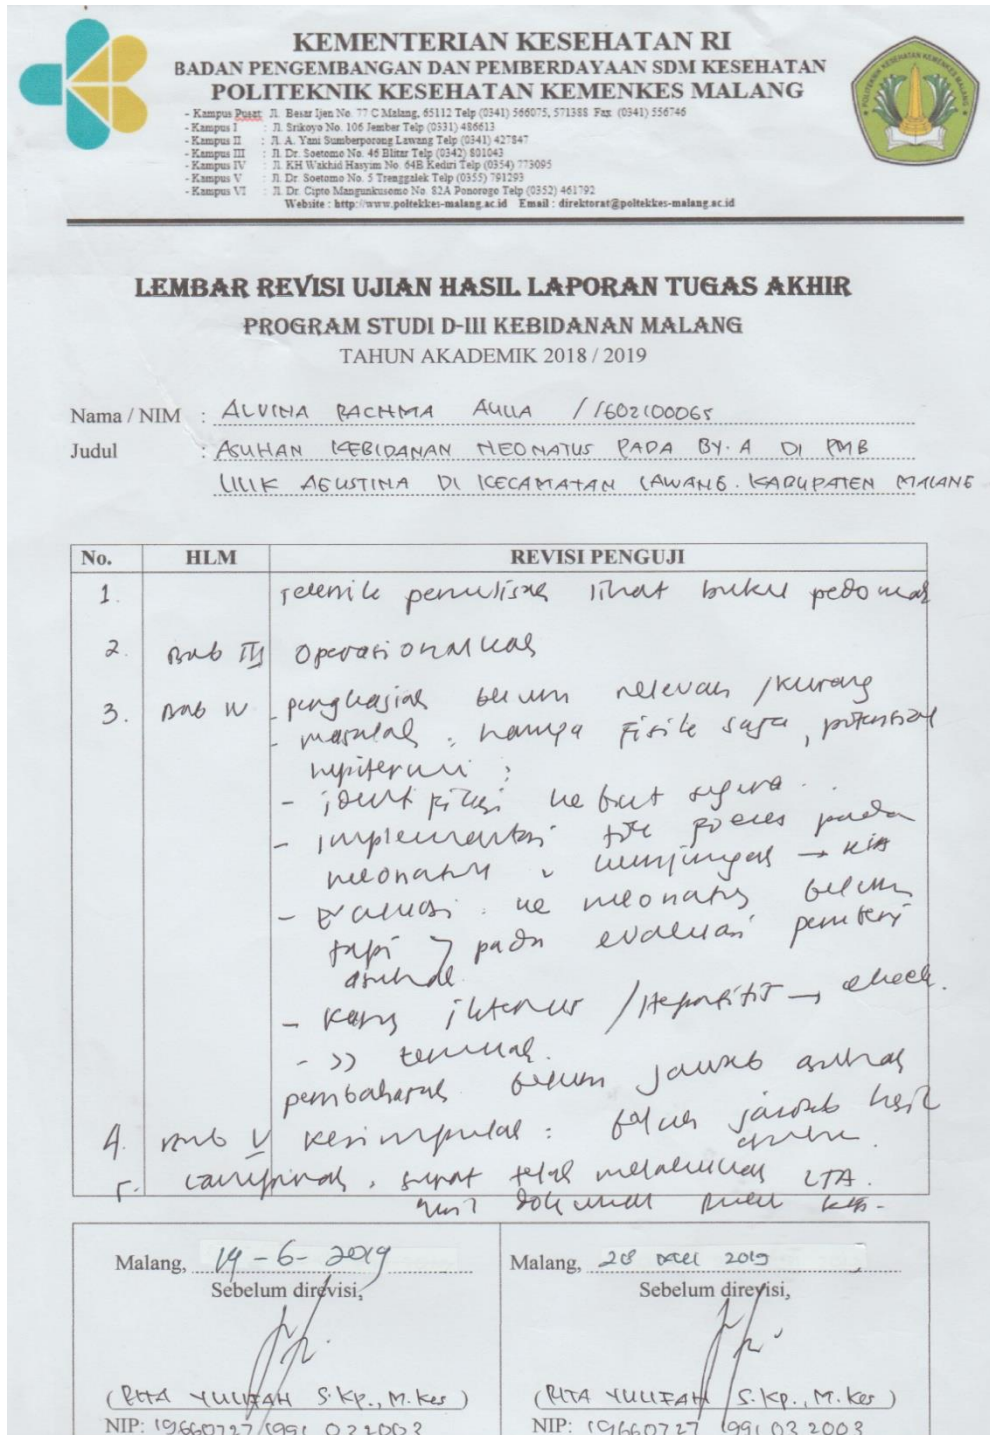 KEMENTERIAN KESEHATAN RI
BADAN PENGEMBANGAN DAN PEMBERDAYAAN SDM KESEHATAN
POLITEKNIK KESEHATAN KEMENKES MALANG
- Kampus Pusat : Jl. Besar Ijen No. 77 C Malang, 65112 Telp (0341) 566075, 571388 Fax (0341) 556746
- Kampus I : Jl. Srikoyo No. 106 Jember Telp (0331) 486613
- Kampus II : Jl. A. Yani Sumberporong Lawang Telp (0341) 427847
- Kampus III : Jl. Dr. Soetomo No. 46 Blitar Telp (0342) 801043
- Kampus IV : Jl. KH Wakhid Hasyim No. 64B Kediri Telp (0354) 773095
- Kampus V : Jl. Dr. Soetomo No. 5 Trenggalek Telp (0355) 791293
- Kampus VI : Jl. Dr. Cipto Mangunkusomo No. 82A Ponorogo Telp (0352) 461792
Website : http://www.poltekkes-malang.ac.id Email : direktorat@poltekkes-malang.ac.id
LEMBAR REVISI UJIAN HASIL LAPORAN TUGAS AKHIR
PROGRAM STUDI D-III KEBIDANAN MALANG
TAHUN AKADEMIK 2018 / 2019
Nama / NIM : ALVINA RACHMA AULIA / 1602100065
Judul : ASUHAN KEBIDANAN NEONATUS PADA BY. A DI PMB
LILIK AGUSTINA DI KECAMATAN LAWANG KABUPATEN MALANG
No. HLM REVISI PENGUJI
1. penulisan lihat buku pedoman
2. Bab III operasionalkan
3. Bab IV - pengkajian belum relevan / kurang
- masalah : hanya fisik saja, potensial
hipotermi
- identifikasi segera
- implementasi pada
neonatus → KIA
- Evaluasi : neonatus belum
tapi pada evaluasi
asuhan
- ikterus / Hepatitis → check.
- >>
pembahasan belum jawab asuhan
4. Bab V kesimpulan : belum jawab hasil
5. Lampiran, surat telah melakukan LTA.
Malang, 14 - 6 - 2019
Sebelum direvisi,
(RITA YULIFAH S.Kp., M.Kes)
NIP: 19660727 1991 03 2003
Malang, 28 2019
Sebelum direvisi,
(RITA YULIFAH S.Kp., M.Kes)
NIP: 19660727 1991 03 2003